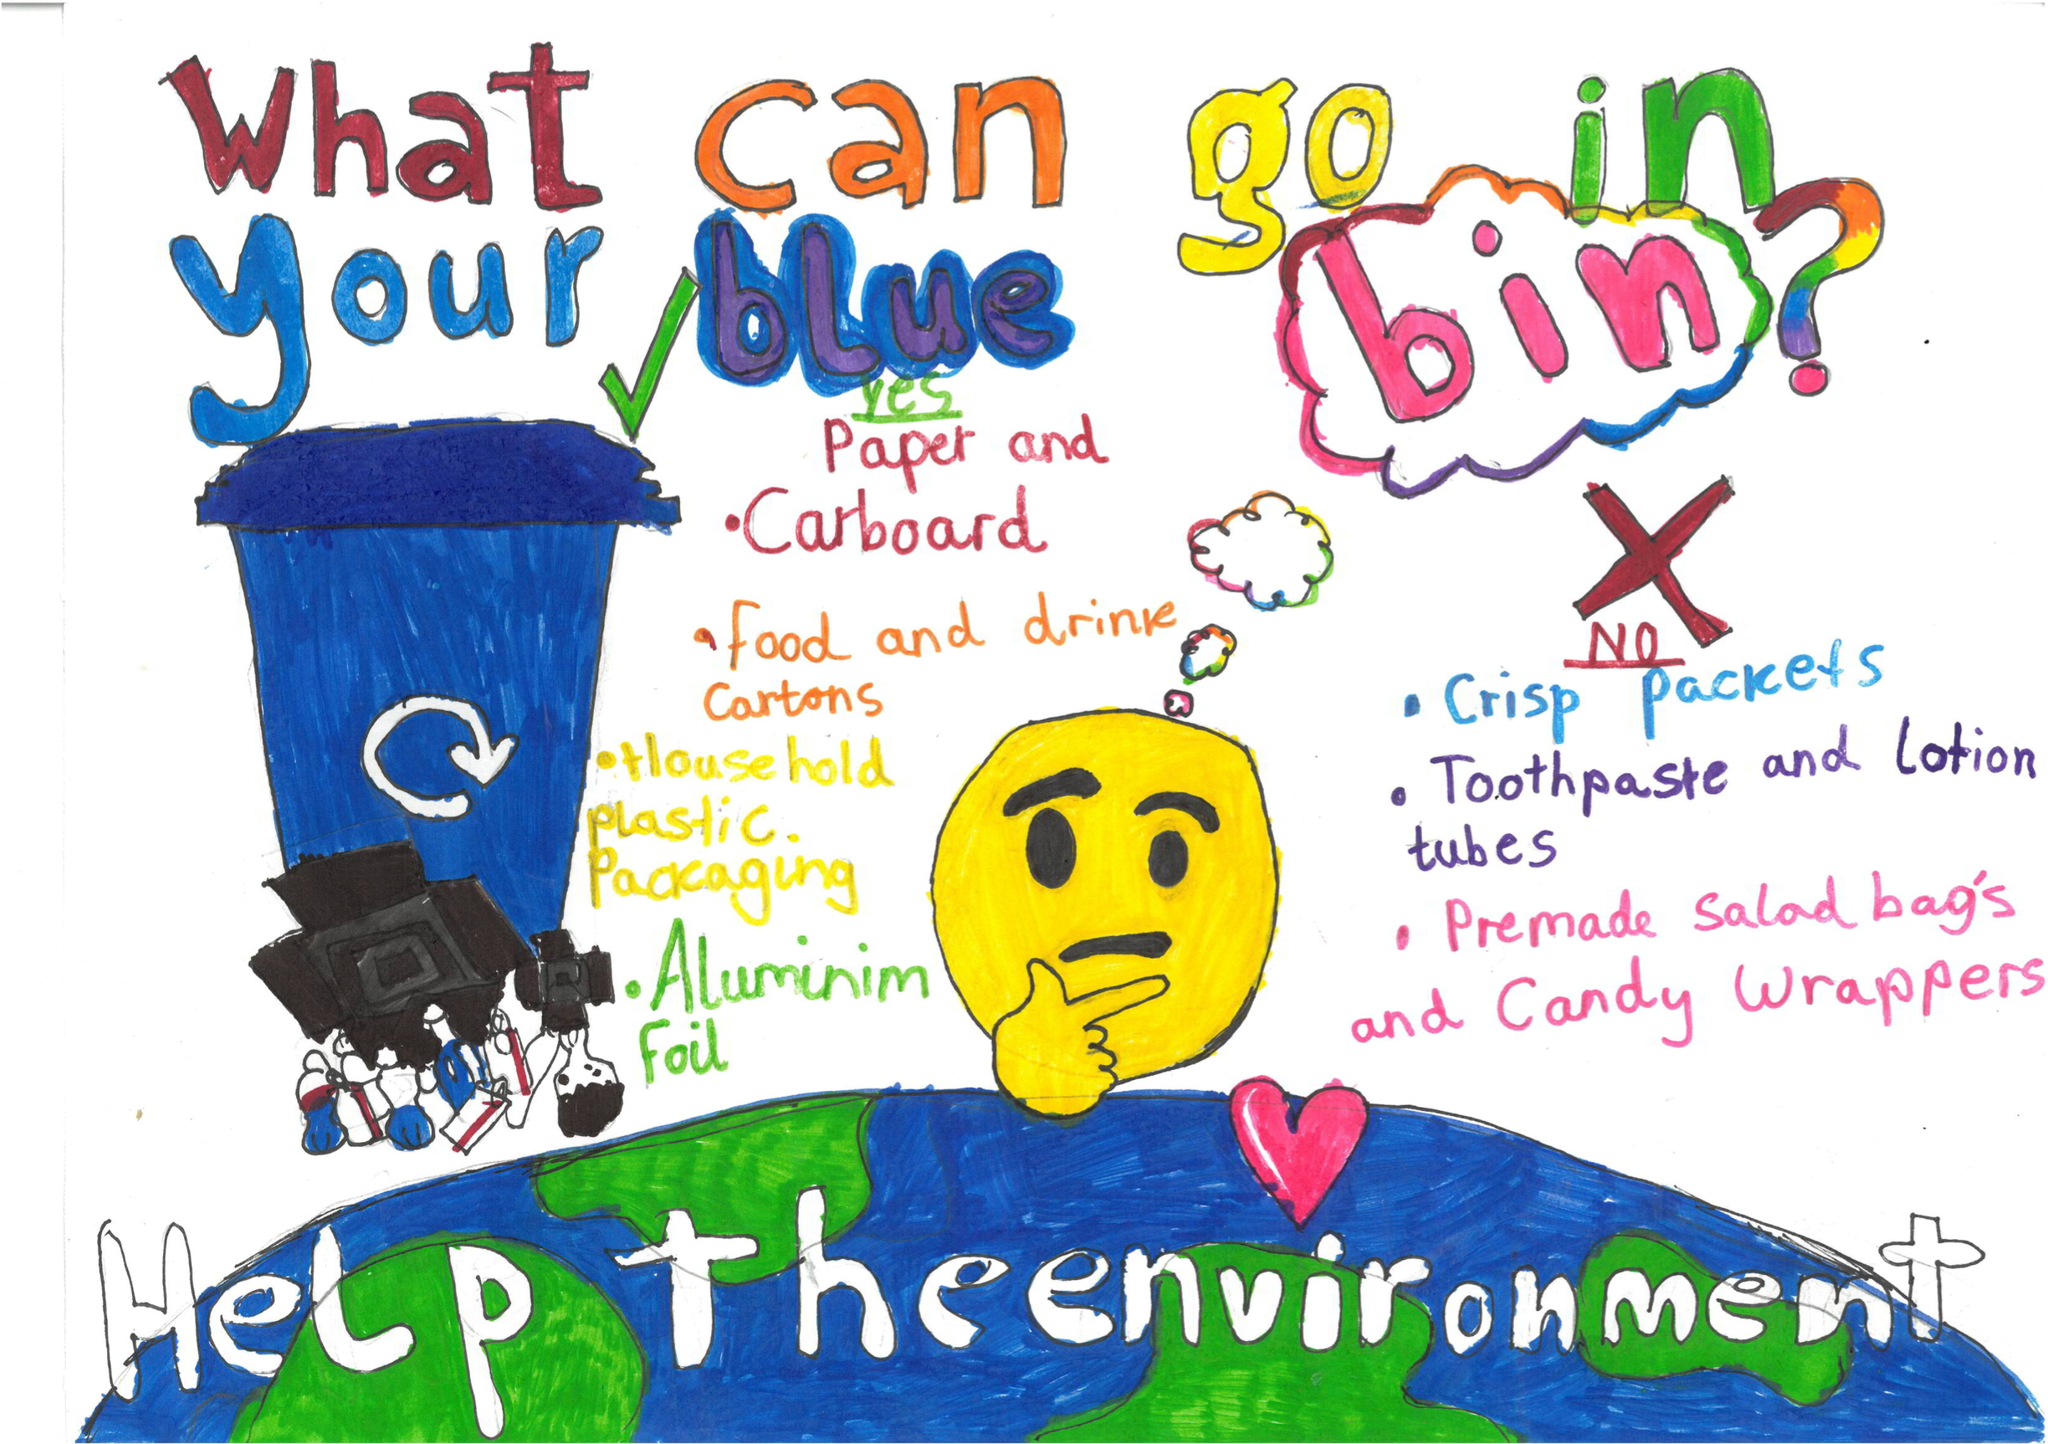 What can go in
your blue bin?
yes
Paper and
• Carboard
• Food and drink
cartons
• Household
plastic.
Packaging
• Aluminim
Foil
NO
• Crisp packets
• Toothpaste and lotion
tubes
• Premade salad bag's
and Candy wrappers
Help the environment